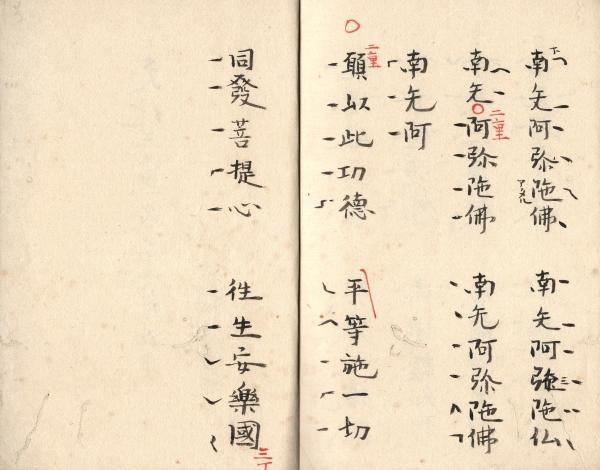 南无阿弥陁佛 南无阿弥陁仏
南无阿弥陁佛 南无阿弥陁佛
二重
南无阿
二重
願以此功德 平等施一切
同發菩提心 往生安樂國